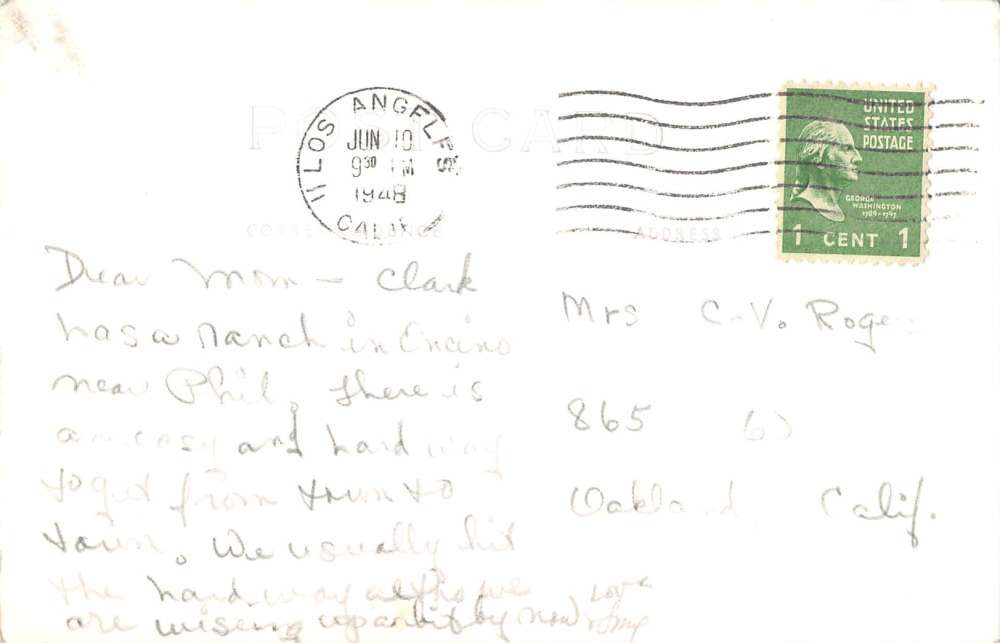 POST CARD
11 LOS ANGELES
JUN 10
9 30 PM
1948
CALIF.
UNITED
STATES
POSTAGE
GEORGE
WASHINGTON
1789-1797
1 CENT 1
CORRESPONDANCE
ADDRESS
Dear Mom - Clark
has a ranch in Encino
near Phil. There is
an easy and hard way
to get from town to
town. We usually hit
the hard way altho we
are wising up a bit by now.
Love
Mrs C. V. Rogers
865
Oakland Calif.